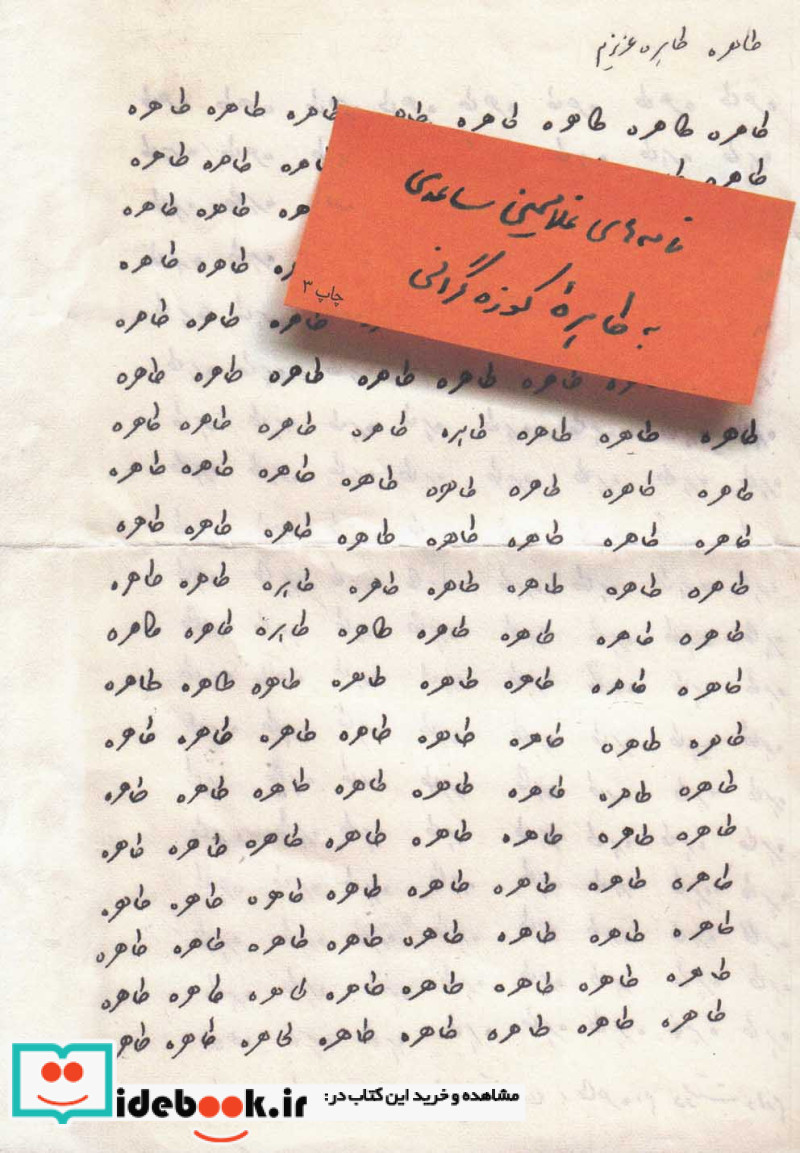 طاهره طاهره عزیزم
طاهره طاهره طاهره طاهره طاهره طاهره طاهره
طاهره طاهره طاهره
نامه‌های غلامحسین ساعدی
طاهره طاهره
به طاهرهٔ کوزه‌گرانی
طاهره طاهره
چاپ ۳
طاهره طاهره طاهره
طاهره طاهره طاهره طاهره طاهره طاهره
طاهره طاهره طاهره طاهره طاهره طاهره طاهره طاهره
طاهره طاهره طاهره طاهره طاهره طاهره طاهره طاهره
طاهره طاهره طاهره طاهره طاهره طاهره طاهره طاهره
طاهره طاهره طاهره طاهره طاهره طاهره طاهره طاهره
طاهره طاهره طاهره طاهره طاهره طاهره طاهره طاهره
طاهره طاهره طاهره طاهره طاهره طاهره طاهره طاهره
طاهره طاهره طاهره طاهره طاهره طاهره طاهره طاهره
طاهره طاهره طاهره طاهره طاهره طاهره طاهره طاهره
طاهره طاهره طاهره طاهره طاهره طاهره طاهره طاهره
طاهره طاهره طاهره طاهره طاهره طاهره طاهره طاهره
طاهره طاهره طاهره طاهره طاهره طاهره طاهره طاهره
طاهره طاهره طاهره طاهره طاهره طاهره طاهره طاهره
طاهره طاهره طاهره طاهره طاهره طاهره طاهره طاهره
مشاهده و خرید این کتاب در:
idebook.ir